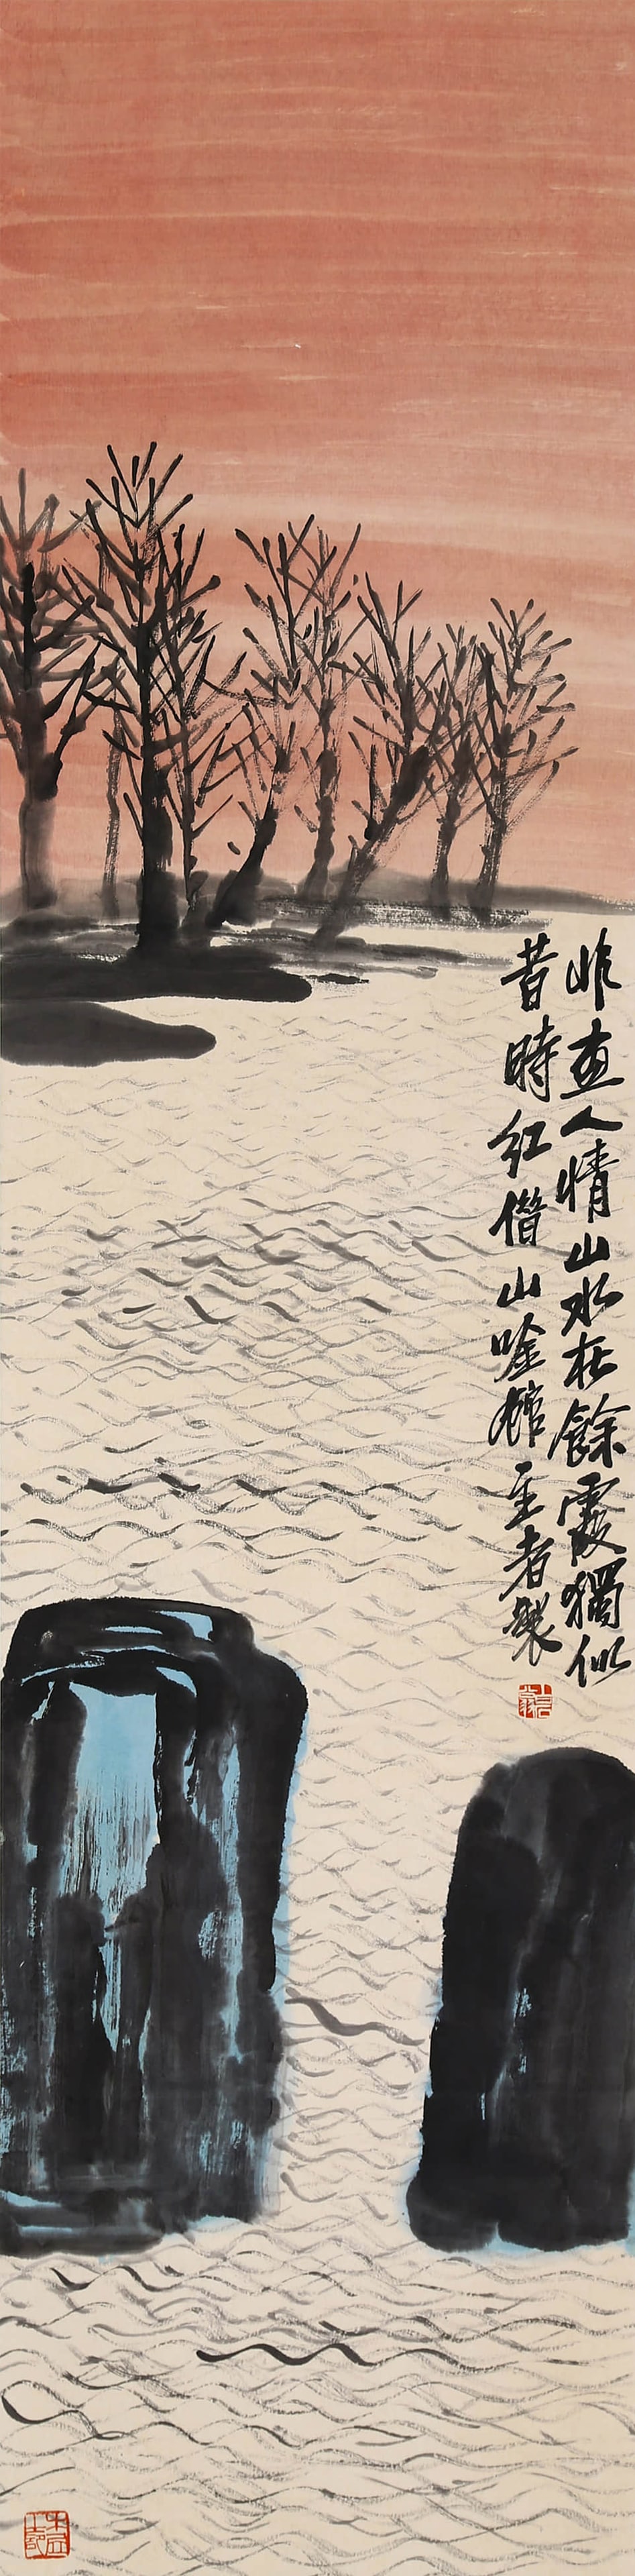 人情山水在餘霞獨似
昔時紅借山唫館主者製